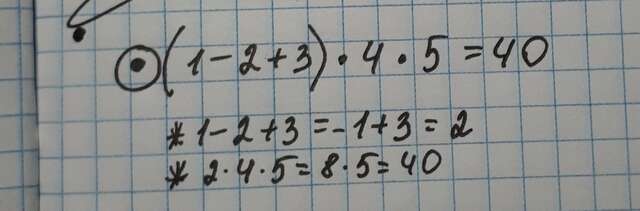 (1-2+3)·4·5=40
* 1-2+3=-1+3=2
* 2·4·5=8·5=40